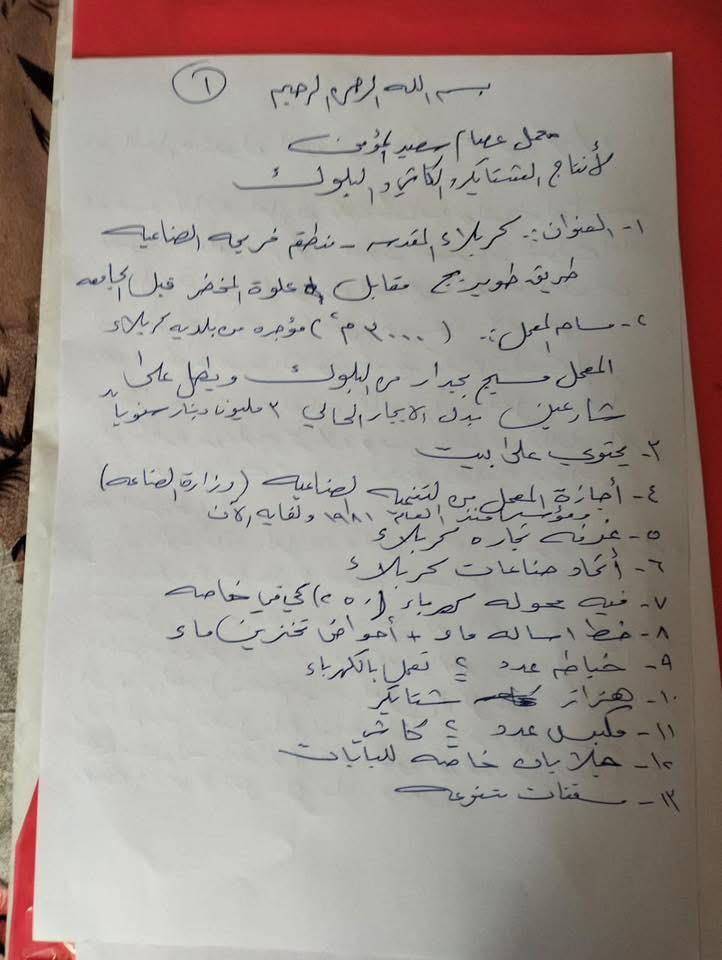 بسم الله الرحمن الرحيم
١
معمل عصام سعيد المؤمن
لأنتاج الشتايكر والكاشي والبلوك
١- العنوان:- كربلاء المقدسه - منطقه فريحه الصناعيه
طريق طويريج مقابل علوة المخضر قبل الجامعه
٢- مساحه المعمل:- (٣٠٠٠ م٢) مؤجره من بلديه كربلاء
المعمل مسيج بجدار من البلوك ويطل على
شارعين بدل الايجار الحالي ٣ مليون دينار سنوياً
٣- يحتوي على بيت
٤- أجازة المعمل من التنميه الصناعيه (وزارة الصناعه)
ومؤسس منذ العام ١٩٨١ ولغايه الآن
٥- غرفه تجاره كربلاء
٦- أتحاد صناعات كربلاء
٧- فيه محوله كهرباء (٢٥٠) كي في خاصه
٨- خط اساله ماء + أحواض تخزين ماء
٩- خباطه عدد ٢ تعمل بالكهرباء
١٠- هزاز شتايكر
١١- مكبس عدد ٢ كاشي
١٢- خاصه للبايات
١٣- مسقفات متنوعه